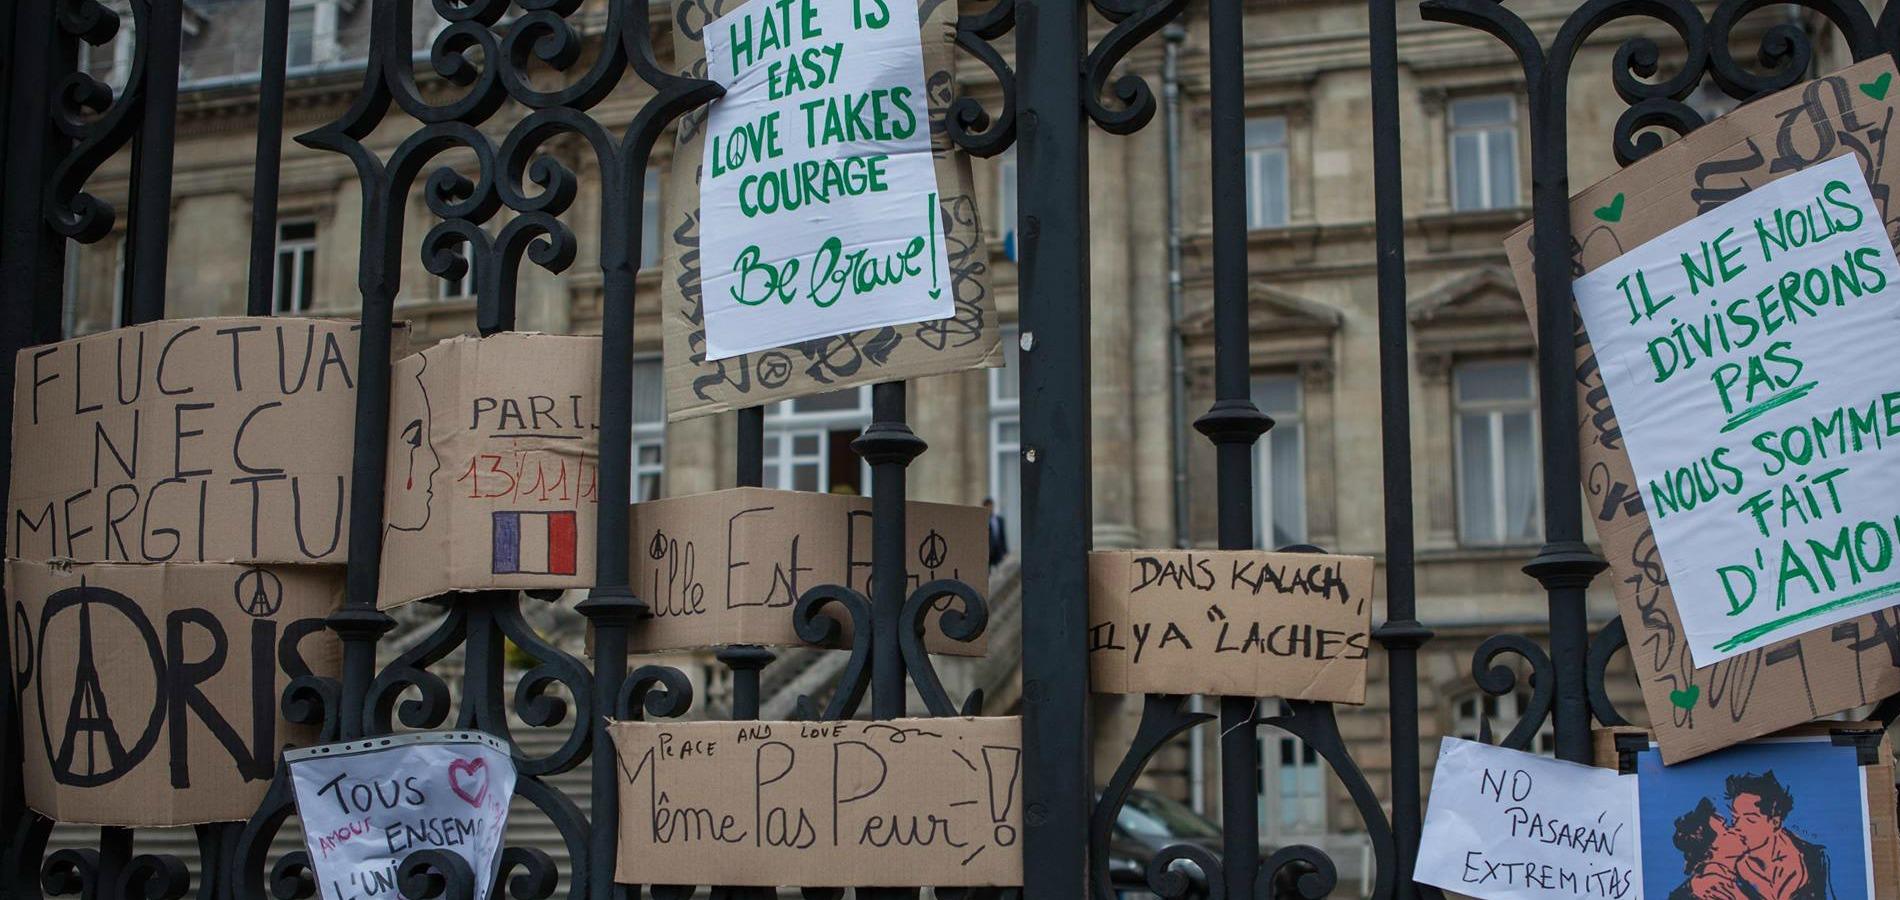 HATE IS
EASY
LOVE TAKES
COURAGE
Be brave!
IL NE NOUS
DIVISERONS
PAS
NOUS SOMME
FAIT
D'AMOU
FLUCTUAT
NEC
MERGITU
PARIS
PARI
13/11/1
ille Est Paris
DANS KALACH,
IL Y A "LACHES
PEACE AND LOVE
Même Pas Peur!
TOUS
AMOUR
ENSEM
L'UNI
NO
PASARÁN
EXTREMITAS